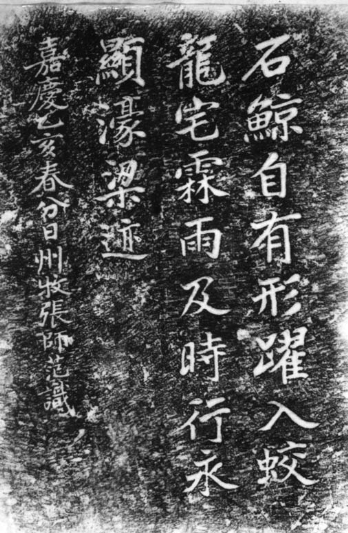 石鯨自有形躍入蛟
龍宅霖雨及時行永
顯濠梁迹
嘉慶乙亥春分日州牧張師范識